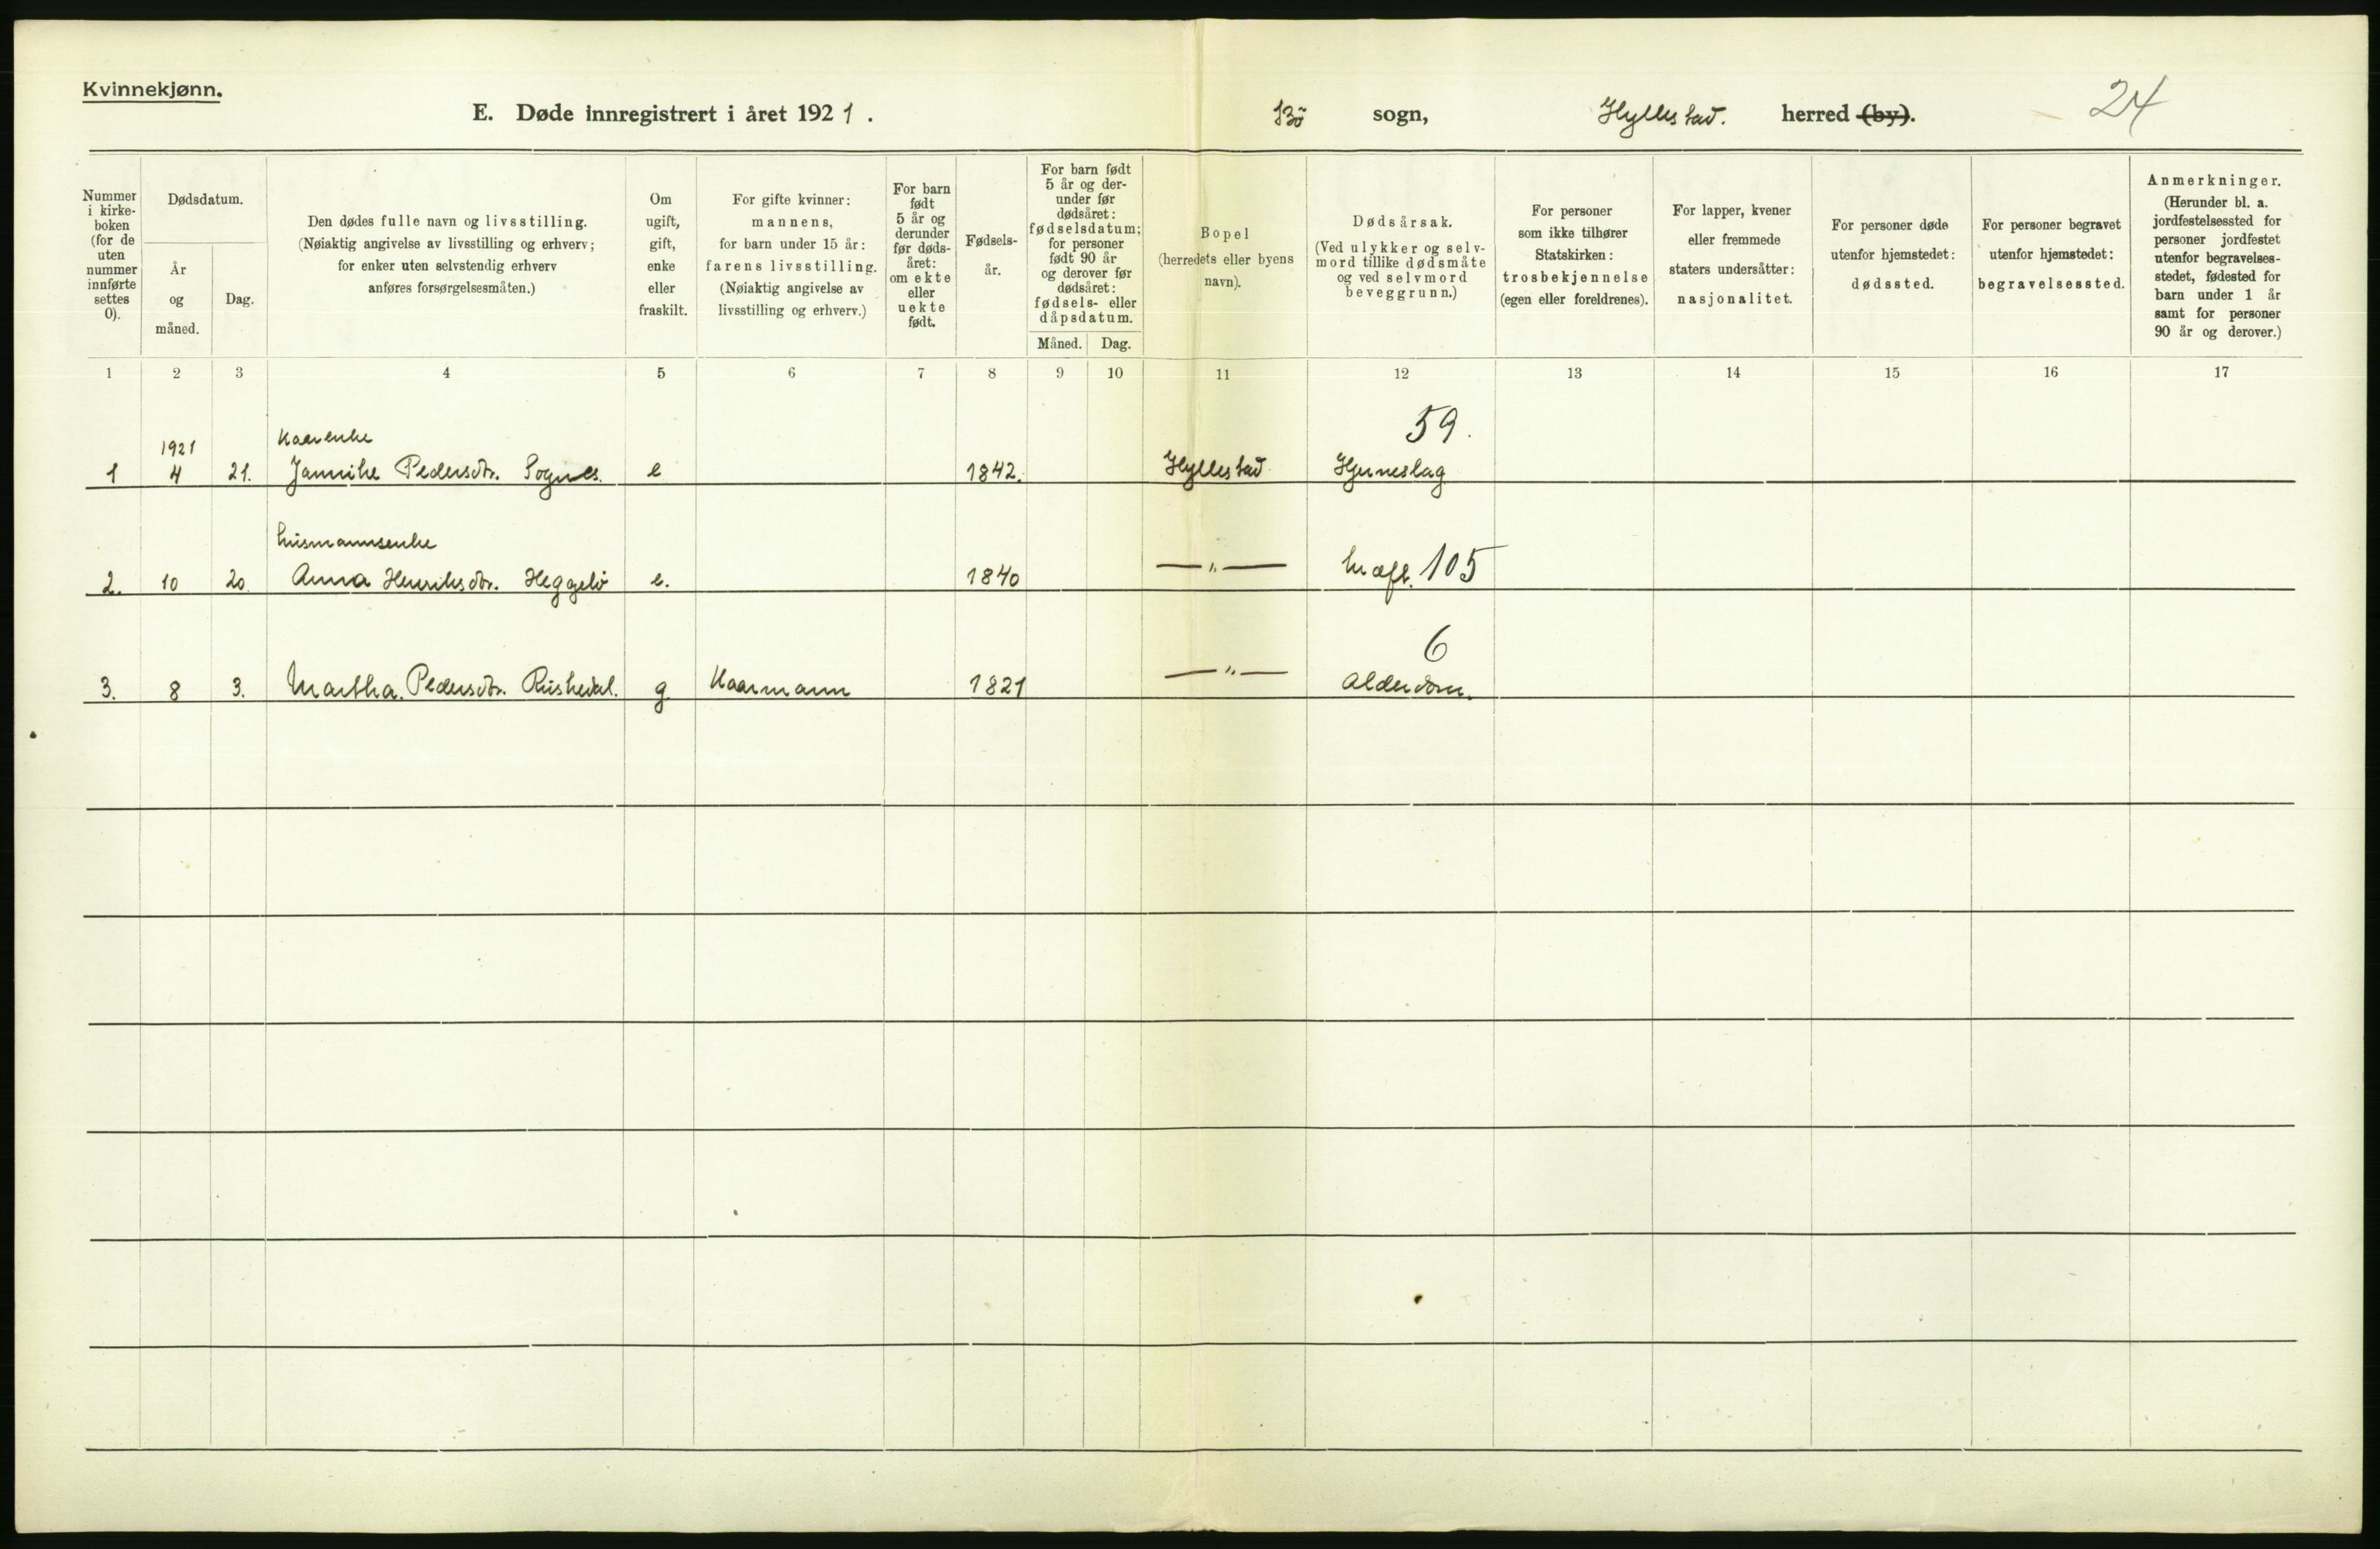 Kvinnekjønn.
E. Døde innregistrert i året 1921.
Bö sogn,
Hyllestad. herred (by).
24
Nummer i kirke-boken (for de uten nummer innførte settes 0).
Dødsdatum.
År og måned.
Dag.
Den dødes fulle navn og livsstilling.
(Nøiaktig angivelse av livsstilling og erhverv;
for enker uten selvstendig erhverv
anføres forsørgelsesmåten.)
Om ugift, gift, enke eller fraskilt.
For gifte kvinner:
mannens,
for barn under 15 år:
farens livsstilling.
(Nøiaktig angivelse av
livsstilling og erhverv.)
For barn født 5 år og derunder før døds-året: om ekte eller uekte født.
Fødsels-år.
For barn født 5 år og der-under før dødsåret: fødselsdatum; for personer født 90 år og derover før dødsåret: fødsels- eller dåpsdatum.
Måned. Dag.
Bopel
(herredets eller byens
navn).
Dødsårsak.
(Ved ulykker og selv-
mord tillike dødsmåte
og ved selvmord
beveggrunn.)
For personer
som ikke tilhører
Statskirken:
trosbekjennelse
(egen eller foreldrenes).
For lapper, kvener
eller fremmede
staters undersåtter:
nasjonalitet.
For personer døde
utenfor hjemstedet:
dødssted.
For personer begravet
utenfor hjemstedet:
begravelsessted.
Anmerkninger.
(Herunder bl. a.
jordfestelsessted for
personer jordfestet
utenfor begravelses-
stedet, fødested for
barn under 1 år
samt for personer
90 år og derover.)
1 2 3 4 5 6 7 8 9 10 11 12 13 14 15 16 17
1921 Kaarenke 59.
1 4 21. Jannike Pedersdtr. Sognes. e 1842. Hyllestad Hjerneslag
husmannsenke
2. 10 20 Anna Henriksdtr. Heggelö e. 1840 —"— 105
6
3. 8 3. Martha Pedersdtr. Riskedal. g. Kaarmann 1821 —"— Alderdom.